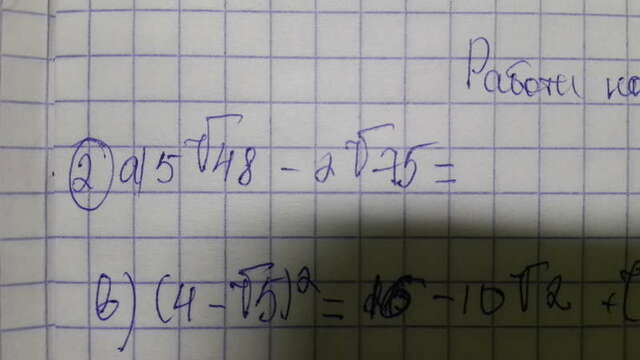 Работа на
2 а) 5√48 - 2√75 =
в) (4 - √5)² = 16 - 10√2 + (